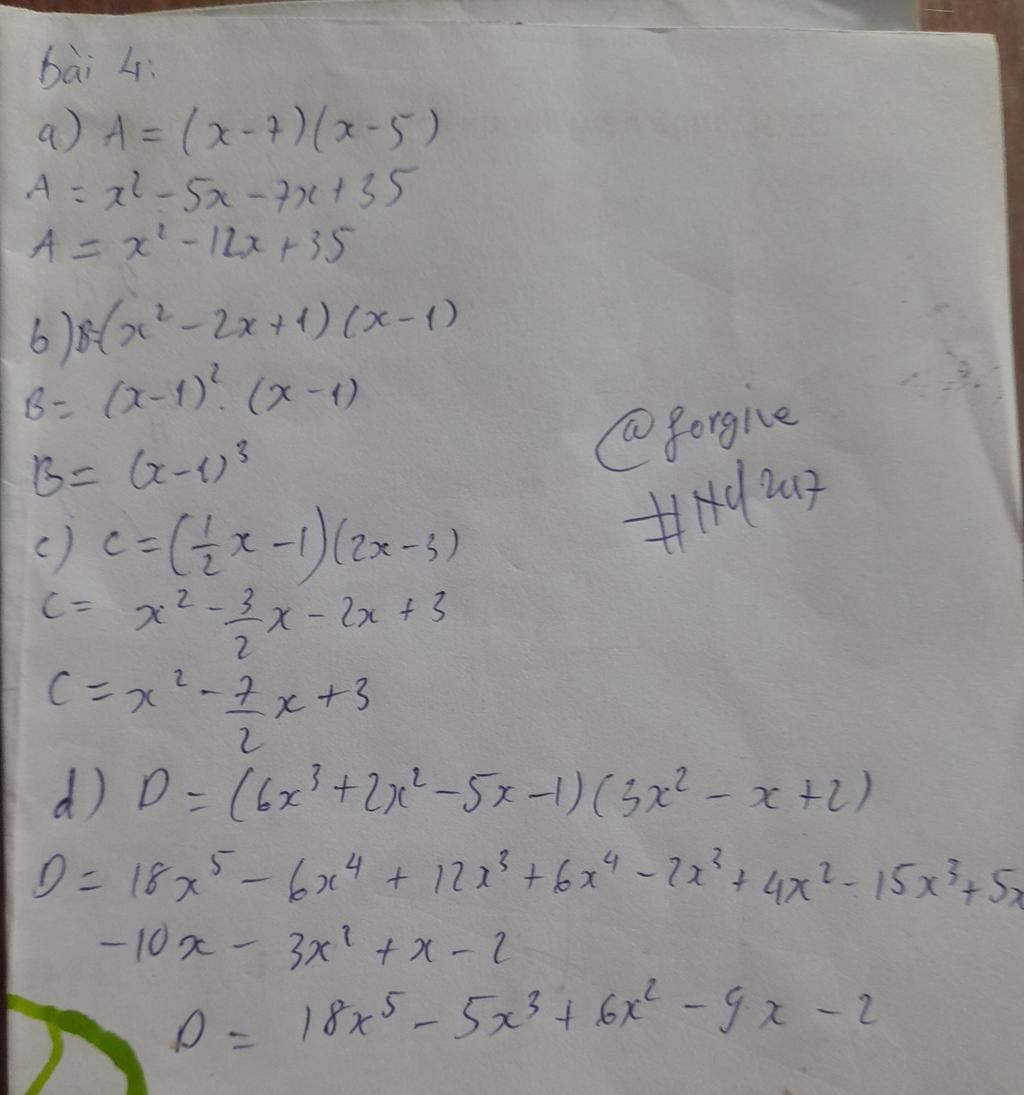 bài 4:
a) A = (x-7)(x-5)
A = x² - 5x - 7x + 35
A = x² - 12x + 35
b) B=(x² - 2x + 1)(x - 1)
B = (x-1)². (x - 1)
B = (x-1)³
c) C = (1/2 x - 1)(2x - 3)
C = x² - 3/2 x - 2x + 3
C = x² - 7/2 x + 3
d) D = (6x³ + 2x² - 5x - 1)(3x² - x + 2)
D = 18x⁵ - 6x⁴ + 12x³ + 6x⁴ - 2x³ + 4x² - 15x³ + 5x
-10x - 3x² + x - 2
D = 18x⁵ - 5x³ + 6x² - 9x - 2
@forgive